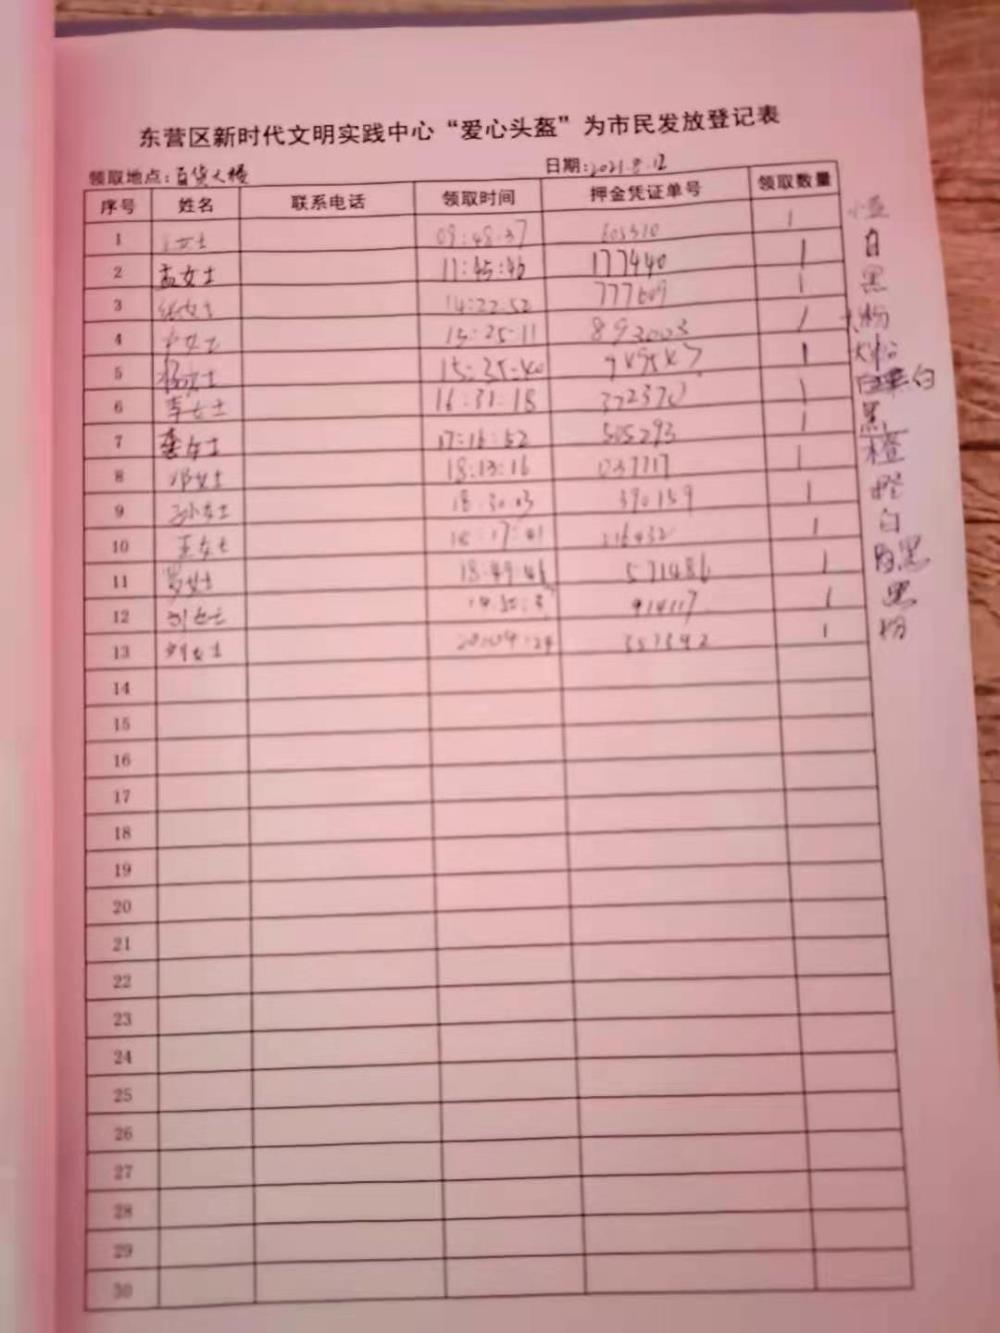 东营区新时代文明实践中心“爱心头盔”为市民发放登记表
领取地点:百货大楼 日期:2021.8.12
序号 姓名 联系电话 领取时间 押金凭证单号 领取数量
1 女士 09:48:37 605310 1
2 孟女士 11:45:46 177440 1 白
3 张女士 14:22:52 777609 1 黑
4 女士 15:25:11 893003 1 粉
5 杨女士 15:35:40 1
6 李女士 16:31:18 1 白
7 娄女士 17:16:52 505293 1 黑
8 邓女士 18:13:16 037717 1 橙
9 孙女士 18:30:03 390159 1 橙
10 王女士 18:17:41 1 白
11 罗女士 18:49:46 571486 1 黑
12 刘女士 914117 1 黑
13 刘女士 20:04:24 357392 1 粉
14
15
16
17
18
19
20
21
22
23
24
25
26
27
28
29
30